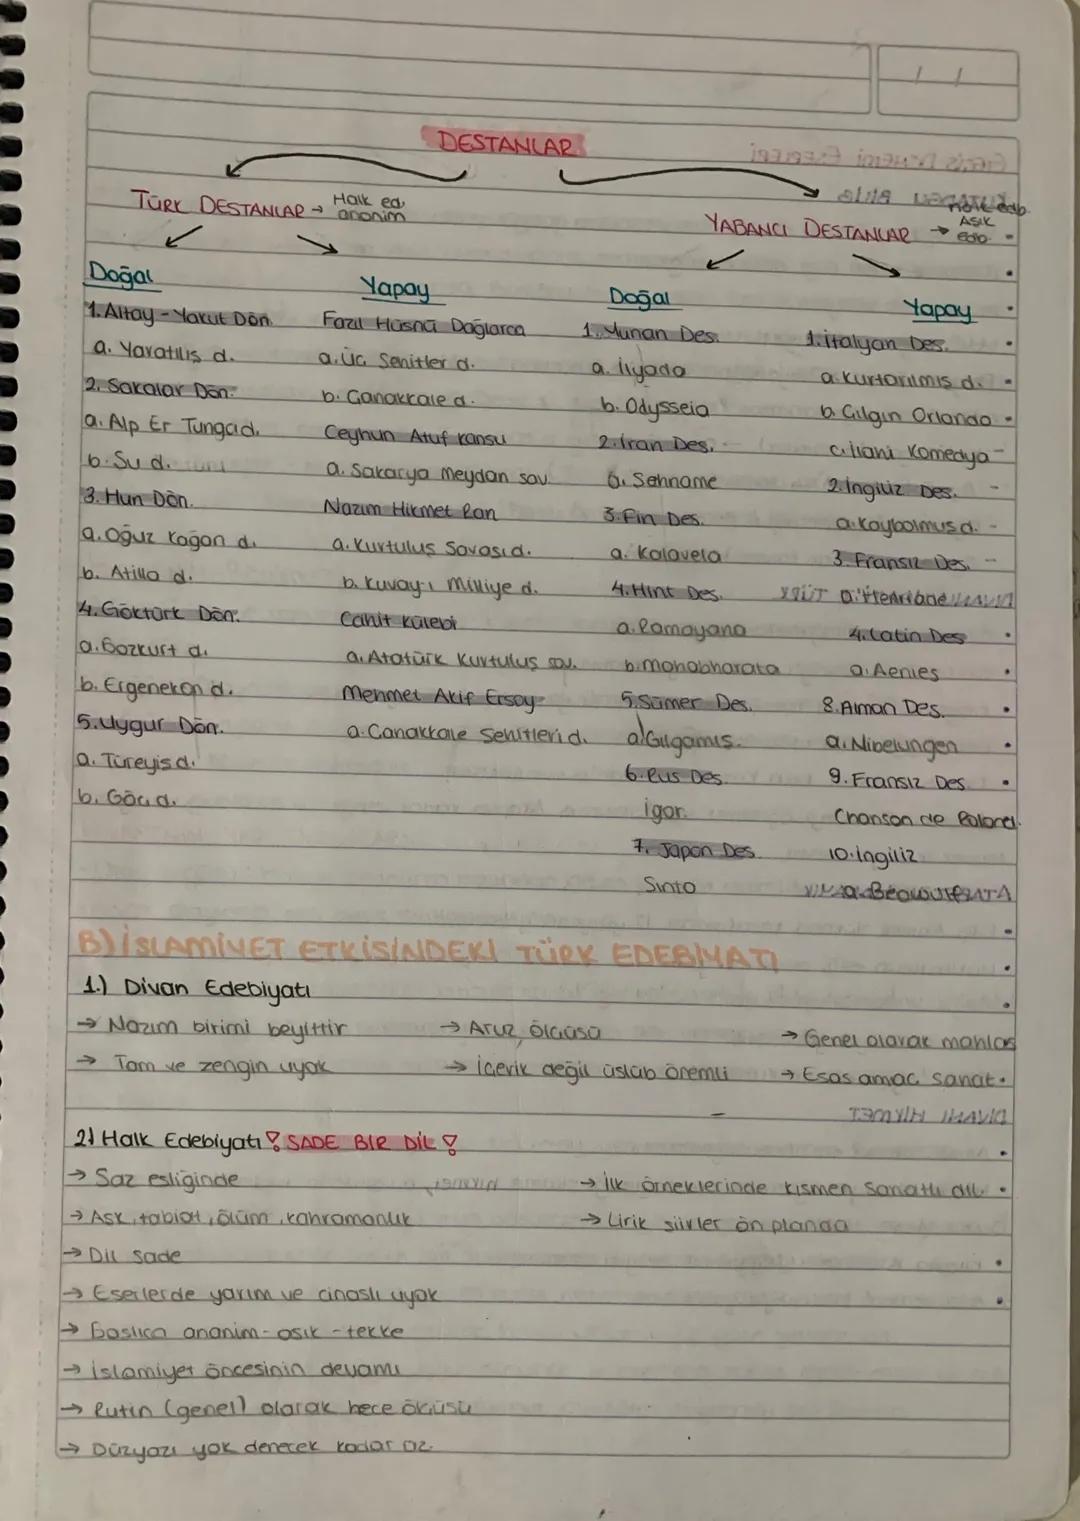 DESTANLAR
TÜRK DESTANLAR → Halk ed. anonim
YABANCI DESTANLAR → Halk edb. Aşık edb.
Doğal
1. Altay - Yakut Dön.
a. Yaratılış d.
2. Sakalar Dön.
a. Alp Er Tunga d.
b. Şu d.
3. Hun Dön.
a. Oğuz Kağan d.
b. Atilla d.
4. Göktürk Dön.
a. Bozkurt d.
b. Ergenekon d.
5. Uygur Dön.
a. Türeyiş d.
b. Göç d.
Yapay
Fazıl Hüsnü Dağlarca
a. Üç Şehitler d.
b. Çanakkale d.
Ceyhun Atuf Kansu
a. Sakarya Meydan sav.
Nazım Hikmet Ran
a. Kurtuluş Savaşı d.
b. Kuvay-ı Milliye d.
Cahit Külebi
a. Atatürk Kurtuluş sav.
Mehmet Akif Ersoy
a. Çanakkale Şehitleri d.
Doğal
1. Yunan Des.
a. İlyada
b. Odysseia
2. İran Des.
a. Şehname
3. Fin Des.
a. Kalavela
4. Hint Des.
a. Ramayana
b. Mahabharata
5. Sümer Des.
a. Gılgamış.
6. Rus Des.
İgor.
7. Japon Des.
Şinto
Yapay
1. İtalyan Des.
a. Kurtarılmış d.
b. Çılgın Orlando
c. İlahi Komedya
2. İngiliz Des.
a. Kaybolmuş d.
3. Fransız Des.
a. Henriade
4. Latin Des
a. Aenies
8. Alman Des.
a. Nibelungen
9. Fransız Des.
Chanson de Roland.
10. İngiliz
a. Beowulf
B) İSLAMİYET ETKİSİNDEKİ TÜRK EDEBİYATI
1.) Divan Edebiyatı
→ Nazım birimi beyittir → Aruz ölçüsü → Genel olarak mahlas
→ Tam ve zengin uyak → İçerik değil üslüb önemli → Esas amaç sanat.
2) Halk Edebiyatı ! SADE BİR DİL !
→ Saz eşliğinde → İlk örneklerinde kısmen sanatlı dil.
→ Aşk, tabiat, ölüm, kahramanlık → Lirik şiirler ön planda
→ Dil sade
→ Eserlerde yarım ve cinaslı uyak
→ Başlıca ananim - aşık - tekke
→ İslamiyet öncesinin devamı
→ Rutin (genel) olarak hece ölçüsü
→ Düzyazı yok denecek kadar az.